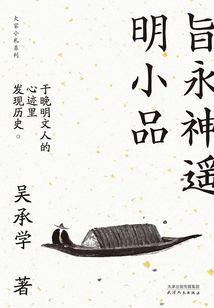 旨永神遥
明小品
大家小札系列
于晚明文人的
心迹里
发现历史。
吴承学 著
天津出版传媒集团
天津人民出版社